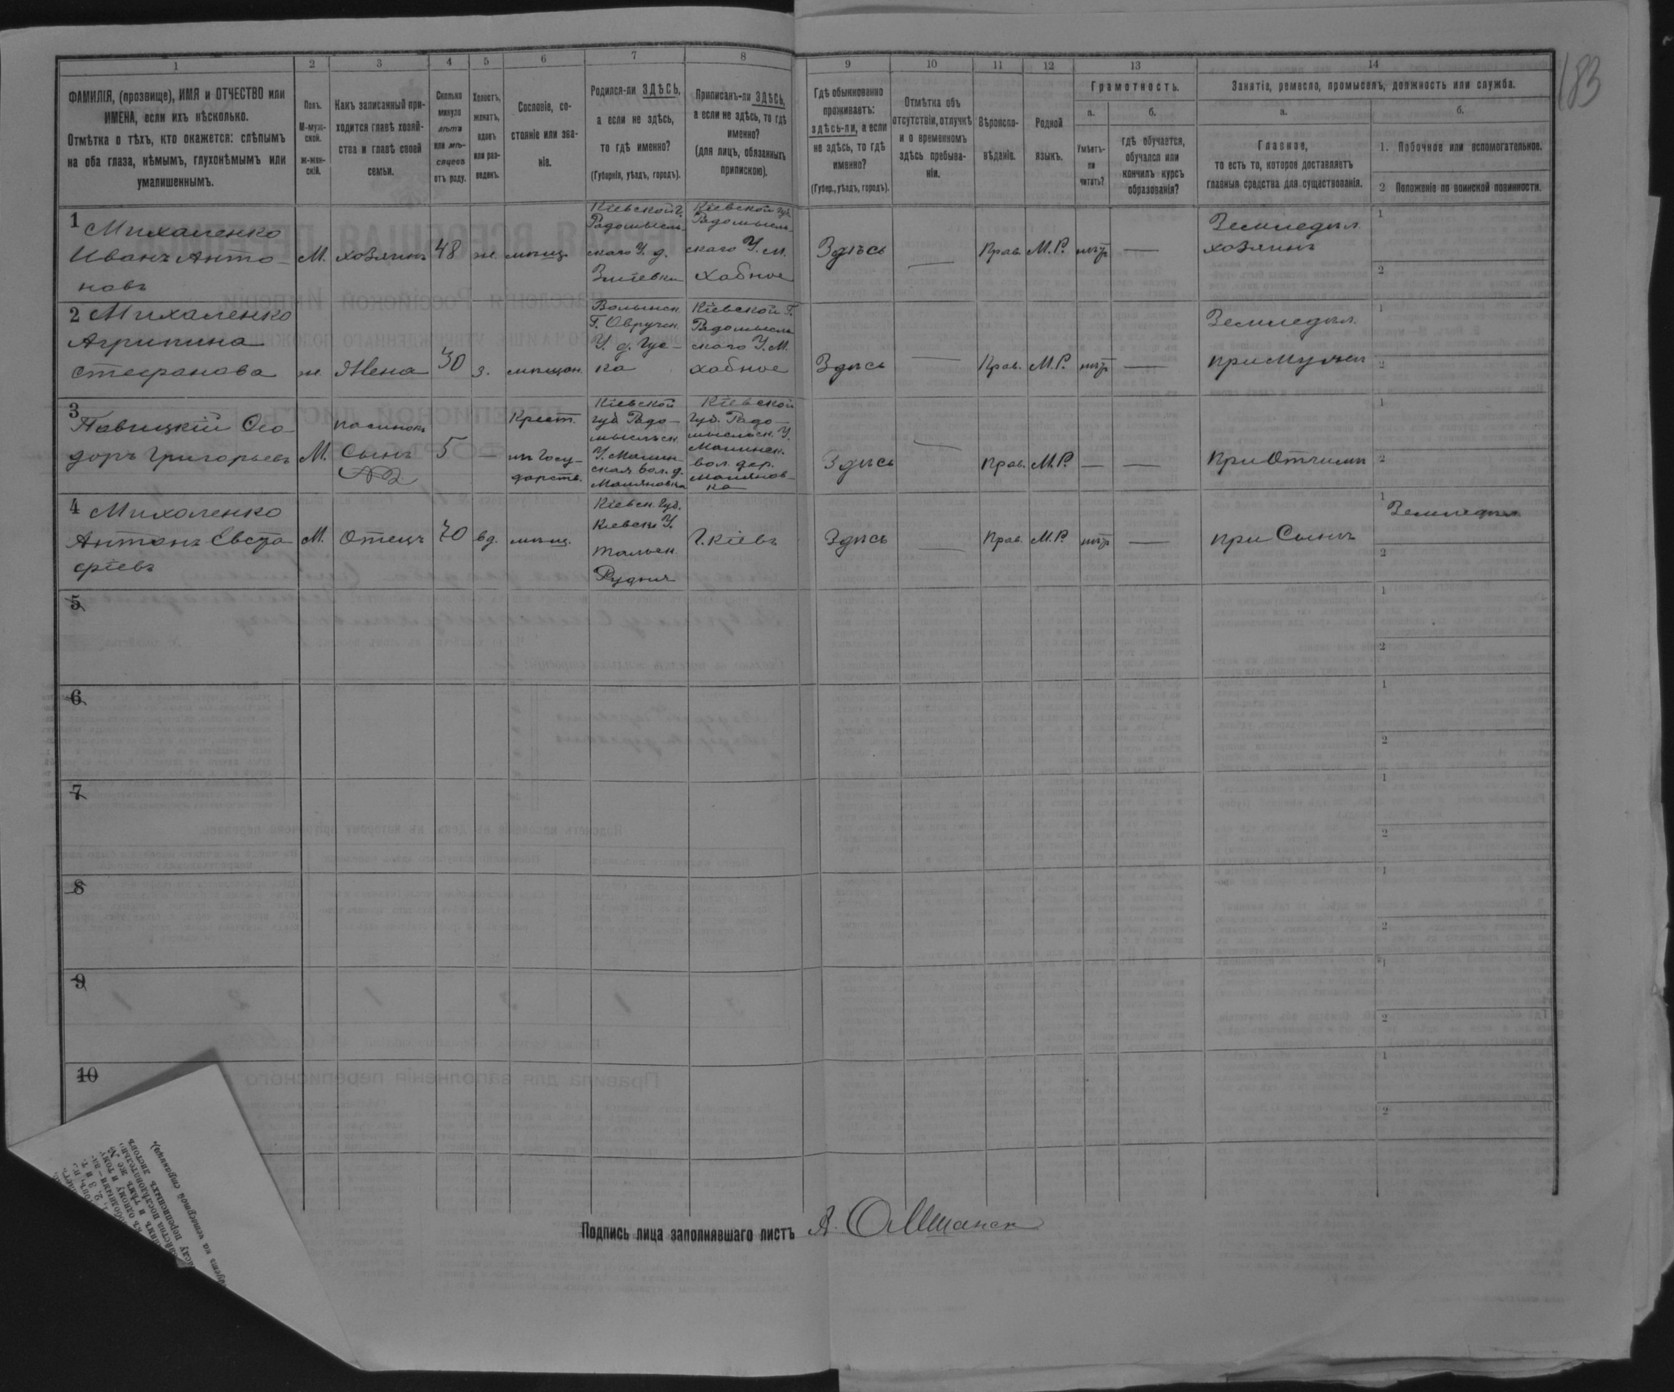 183
1 2 3 4 5 6 7 8 9 10 11 12 13 14
ФАМИЛІЯ, (прозвище), ИМЯ и ОТЧЕСТВО или
ИМЕНА, если ихъ нѣсколько.
Отмѣтка о тѣхъ, кто окажется: слѣпымъ
на оба глаза, нѣмымъ, глухонѣмымъ или
умалишеннымъ.
Полъ.
М-муж-
ской.
ж-жен-
скій.
Какъ записанный при-
ходится главѣ хозяй-
ства и главѣ своей
семьи.
Сколько
минуло
лѣтъ
или мѣ-
сяцевъ
отъ роду.
Холостъ,
женатъ,
вдовъ
или раз-
веденъ.
Сословіе, со-
стояніе или зва-
ніе.
Родился-ли ЗДѢСЬ,
а если не здѣсь,
то гдѣ именно?
(Губернія, уѣздъ, городъ).
Приписанъ-ли ЗДѢСЬ,
а если не здѣсь, то гдѣ
именно?
(для лицъ, обязанныхъ
припискою).
Гдѣ обыкновенно
проживаетъ:
здѣсь-ли, а если
не здѣсь, то гдѣ
именно?
(Губер., уѣздъ, городъ).
Отмѣтка объ
отсутствіи, отлучкѣ
и о временномъ
здѣсь пребыва-
ніи.
Вѣроиспо-
вѣданіе.
Родной
языкъ.
Грамотность.
а.
Умѣетъ-
ли
читать?
б.
гдѣ обучается,
обучался или
кончилъ курсъ
образованія?
Занятіе, ремесло, промыселъ, должность или служба.
а.
Главная,
то есть то, которое доставляетъ
главныя средства для существованія.
б.
1. Побочное или вспомогательное.
2 Положеніе по воинской повинности.
1 Михаленко
Иванъ Анто-
новъ
М. хозяинъ 48 ж. мѣщ.
Кіевской Г.
Радомысль-
скаго У. д.
Кіевской губ.
Радомысль-
скаго У. м.
Хабное
Здѣсь — Прав. М.Р. нѣт —
Земледѣл.
хозяинъ
1
2
2 Михаленко
Агрипина
Стефанова
ж Жена 30 з. мѣщан.
Волынск.
Г. Овручск.
У. д. Гус-
ка
Кіевской Г.
Радомысль-
скаго У. М.
Хабное
Здѣсь — Прав. М.Р. нѣт —
Земледѣл.
при Мужѣ
1
2
3
Ѳео-
доръ Григорьевъ
М. пасынокъ
Сынъ
5 —
Крест.
из Госу-
дарств.
Кіевской
губ. Радо-
мысльск.
У. Малин-
ская вол. д.
Кіевской
Губ. Радо-
мысльск. У.
Малинск.
вол. дер.
Здѣсь — Прав. М.Р. — —
При Отчимѣ
1
2
4 Михаленко
Антонъ Евста
фіевъ
М. Отецъ 70 вд. мѣщ.
Кіевск. Губ.
Кіевск. У.
Рудня
Г. Кіевъ
Здѣсь — Прав. М.Р. нѣт —
при Сынѣ
1 Земледѣл
2
5
1
2
6
1
2
7
1
2
8
1
2
9
1
2
10
1
2
Подпись лица заполнявшаго листъ